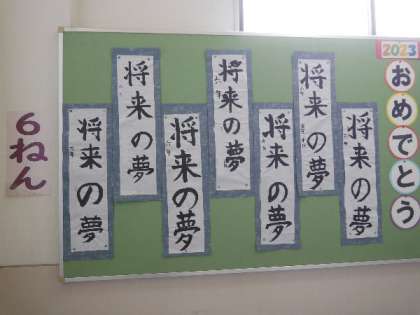 6ねん
将来の夢
将来の夢
将来の夢
将来の夢
将来の夢
将来の夢
将来の夢
2023
おめでとう